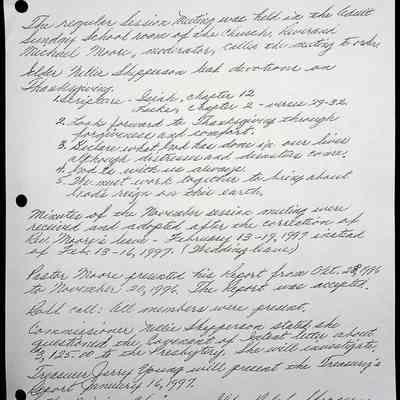 The regular Session Meeting was held in the Adult
Sunday School room of the Church. Reverend
Michael Moore, moderator, called the meeting to order
Elder Nellie Shepperson had devotions on
Thanksgiving.
1. Scripture - Isaiah, chapter 12
Luke, chapter 2 - verses 29-32
2. Look forward to Thanksgiving through
forgiveness and comfort.
3. Declare what God has done in our lives
although distresses and disasters come.
4. God be with us always.
5. We must work together to bring about
God's reign on this earth.
Minutes of the November session meeting were
received and adopted after the correction of
Rev. Moore's leave - February 13-19, 1997 instead
of Feb. 13-16, 1997. (Wedding leave)
Pastor Moore presented his Report from Oct. 28, 1996
to November 20, 1996. The Report was accepted.
Roll call: All members were present.
Commissioner Nellie Shepperson stated she
questioned the Covenant of Intent letter about
$125.10 to the Presbytery. She will investigate.
Treasurer Jerry Young will present the Treasury's
Report January 16, 1997.